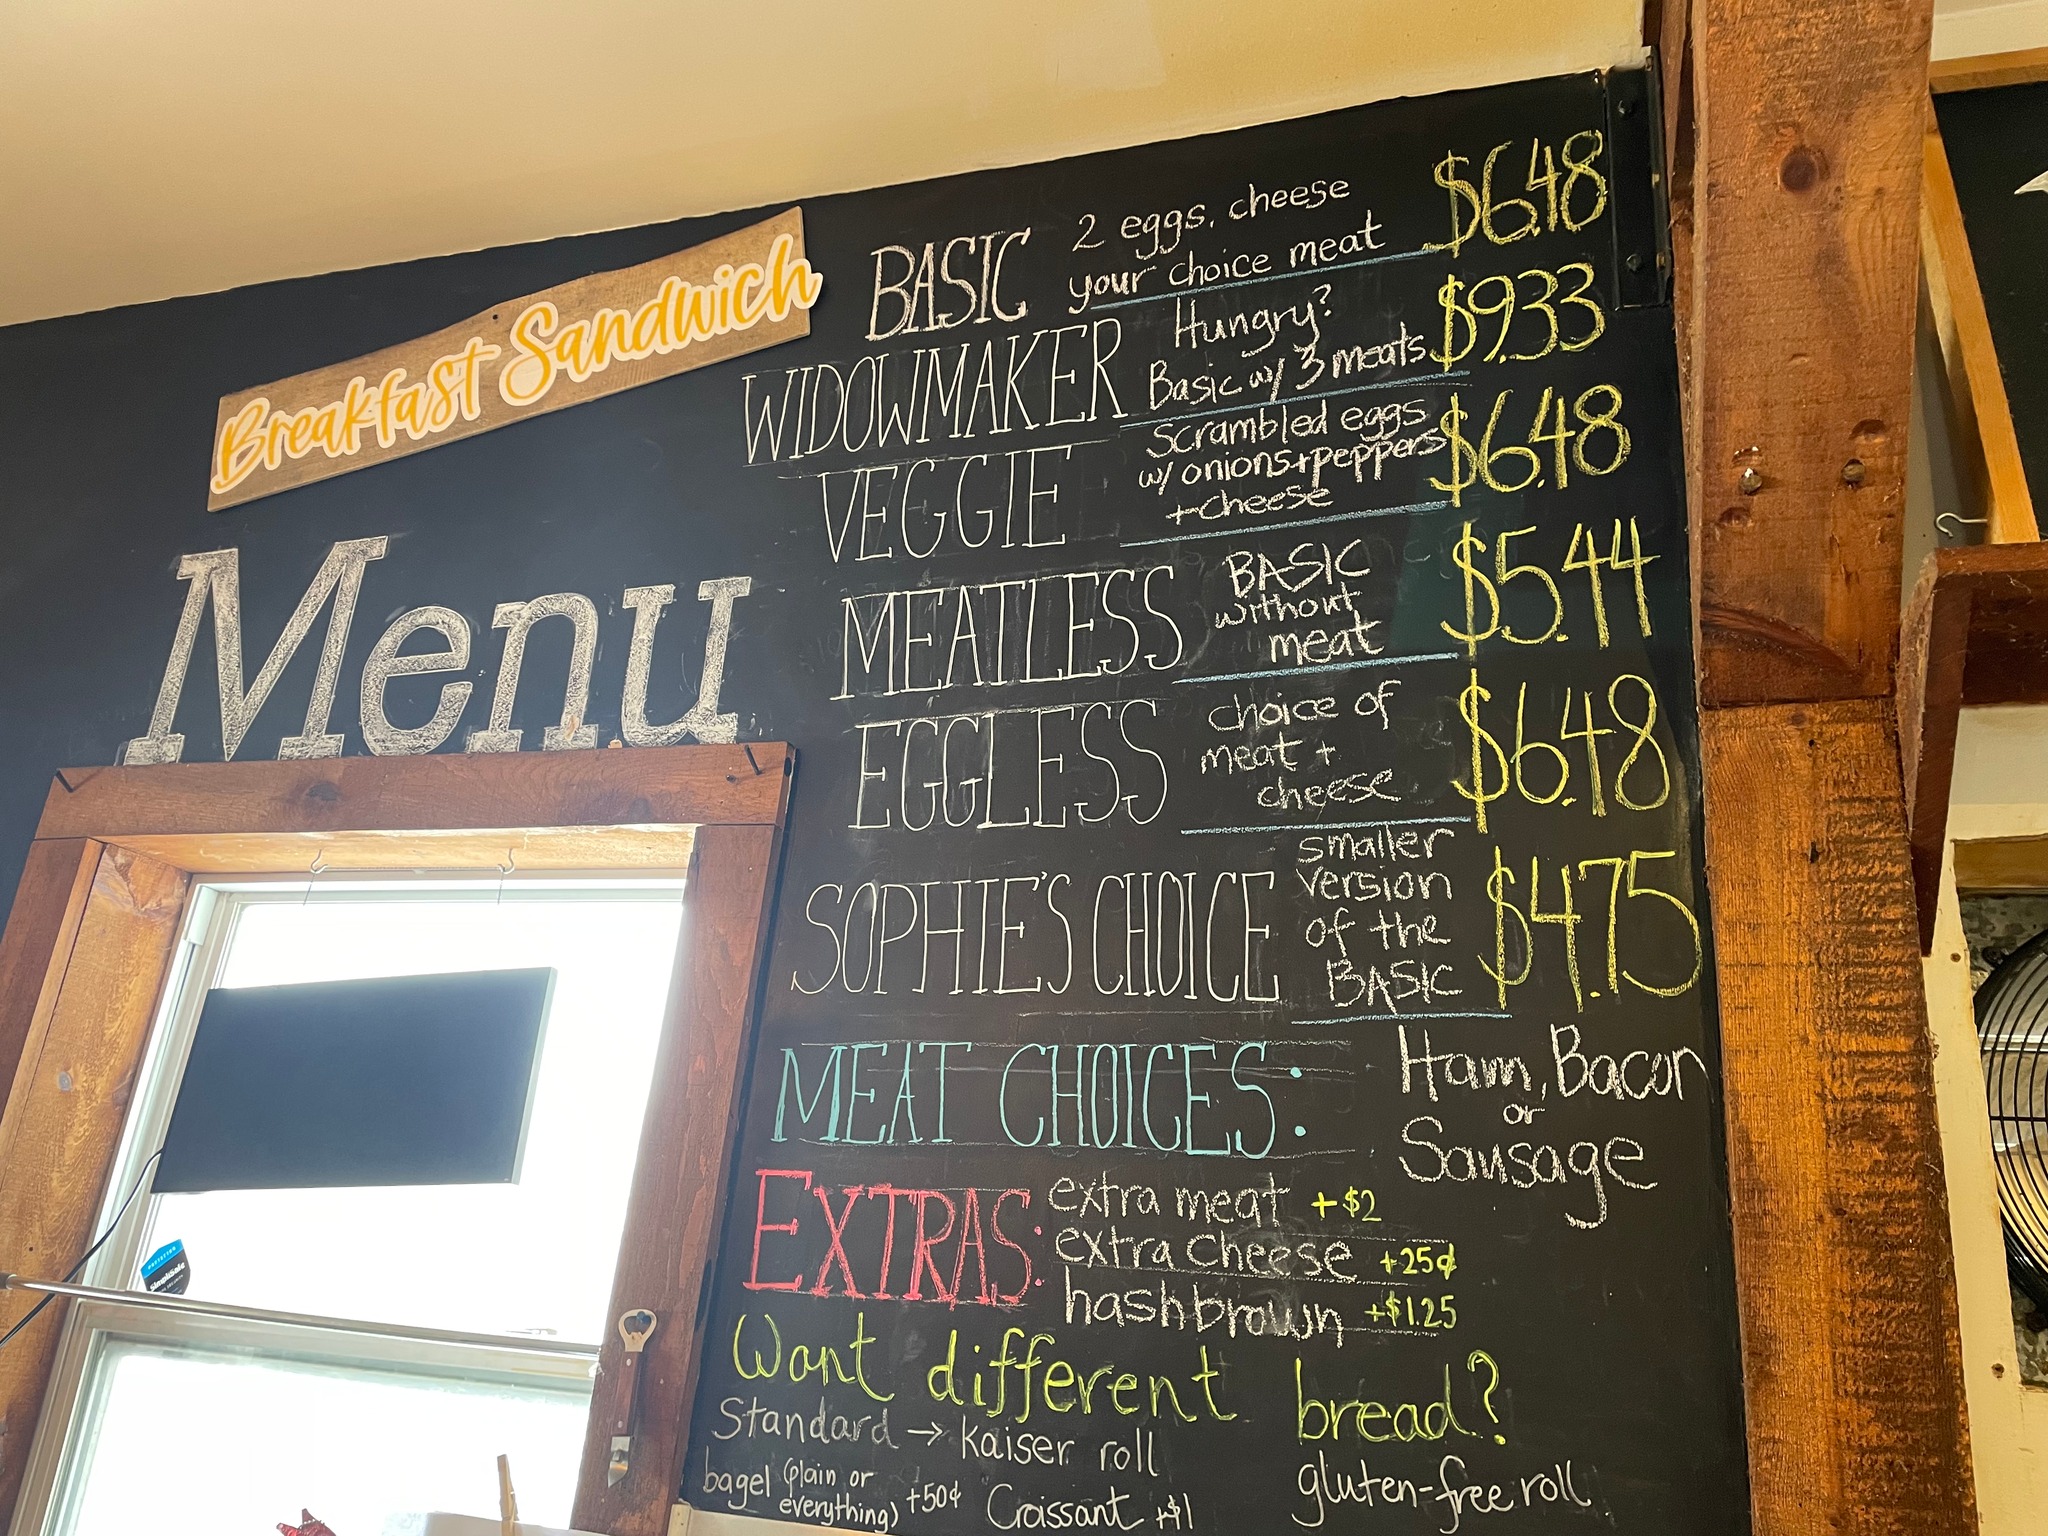 Breakfast Sandwich
Menu
BASIC 2 eggs, cheese your choice meat $6.48
WIDOWMAKER Hungry? Basic w/ 3 meats $9.33
VEGGIE Scrambled eggs w/ onions+peppers +cheese $6.48
MEATLESS BASIC without meat $5.44
EGGLESS choice of meat + cheese $6.48
SOPHIE'S CHOICE smaller version of the BASIC $4.75
MEAT CHOICES: Ham, Bacon or Sausage
EXTRAS: extra meat +$2
extra cheese +25¢
hashbrown +$1.25
Want different bread?
Standard → kaiser roll
bagel (plain or everything) +50¢
Croissant +$1
gluten-free roll
SimpliSafe